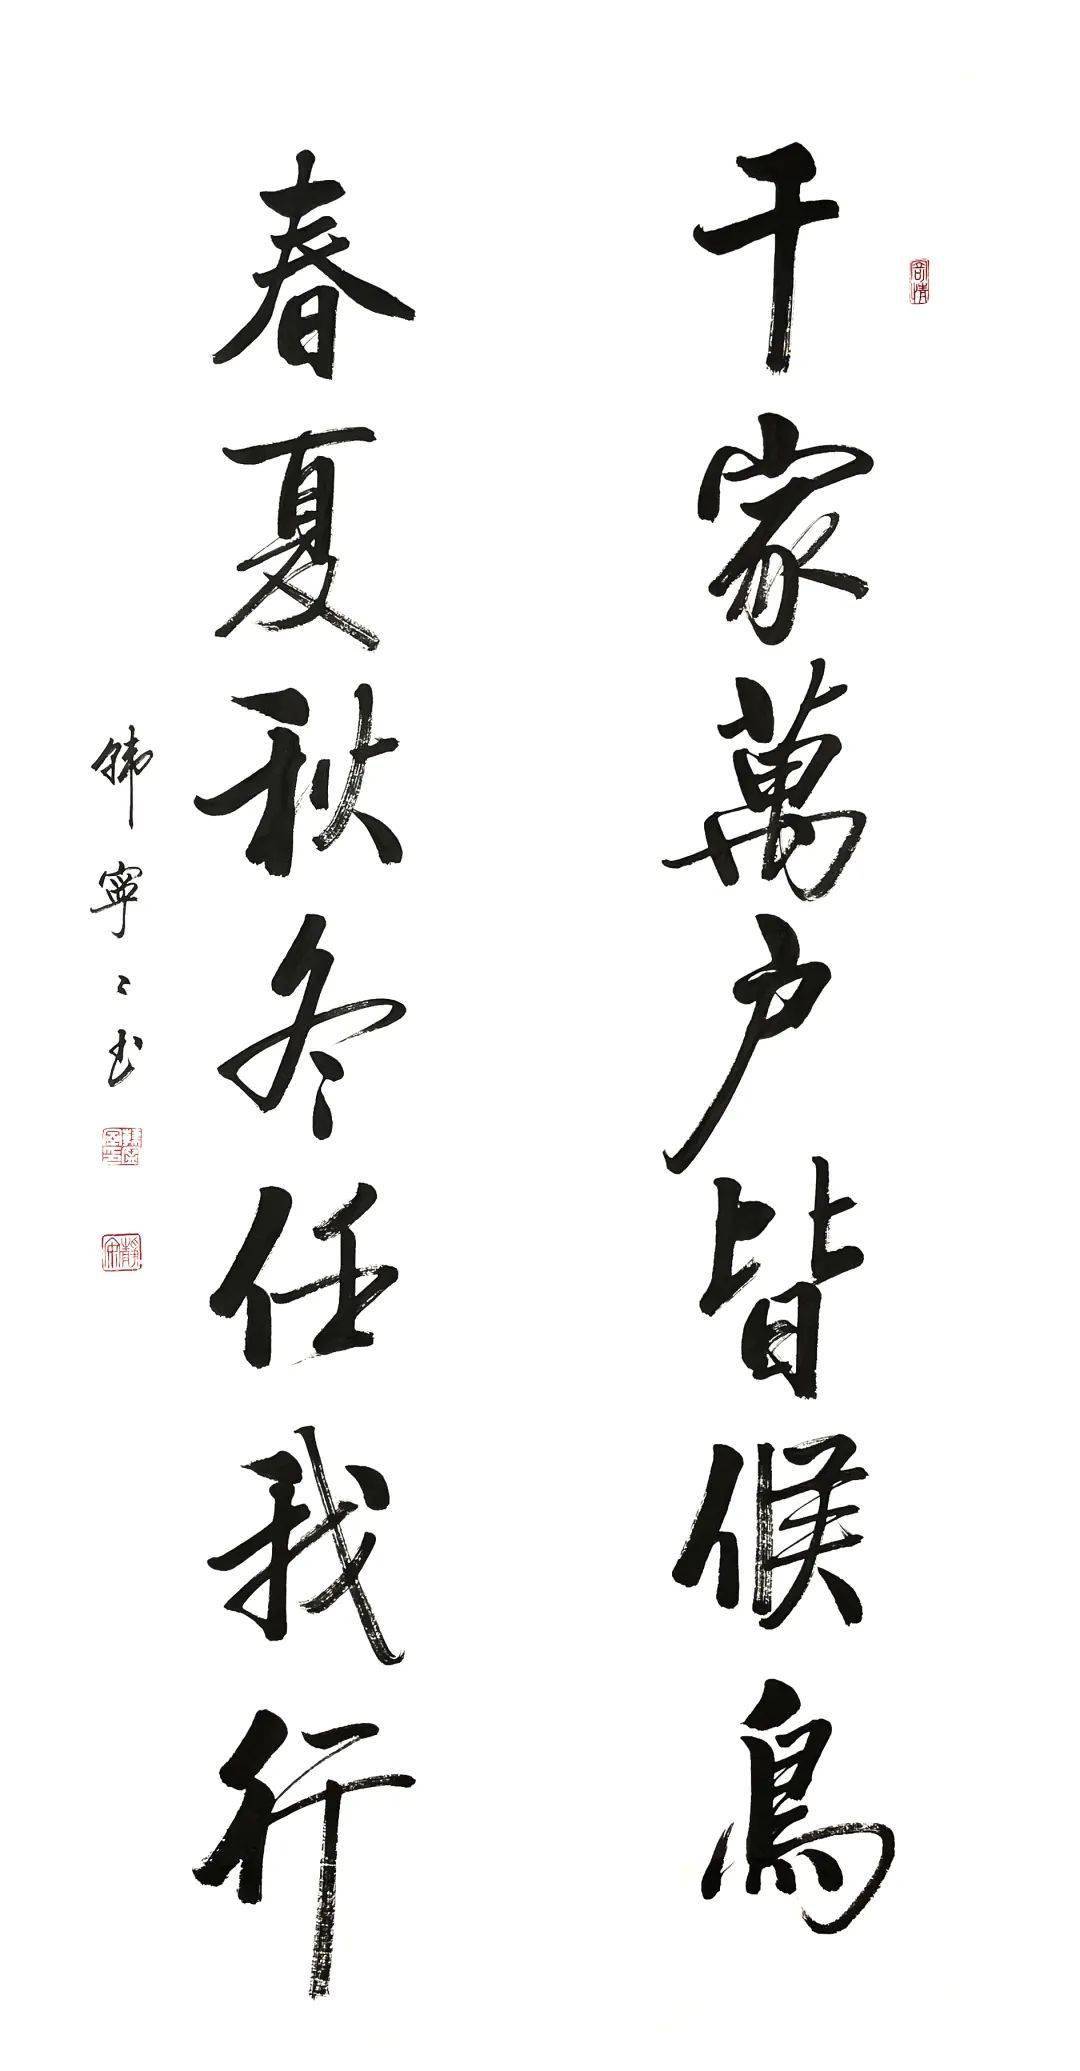 千家萬户皆候鳥
春夏秋冬任我行
韩寧寧书